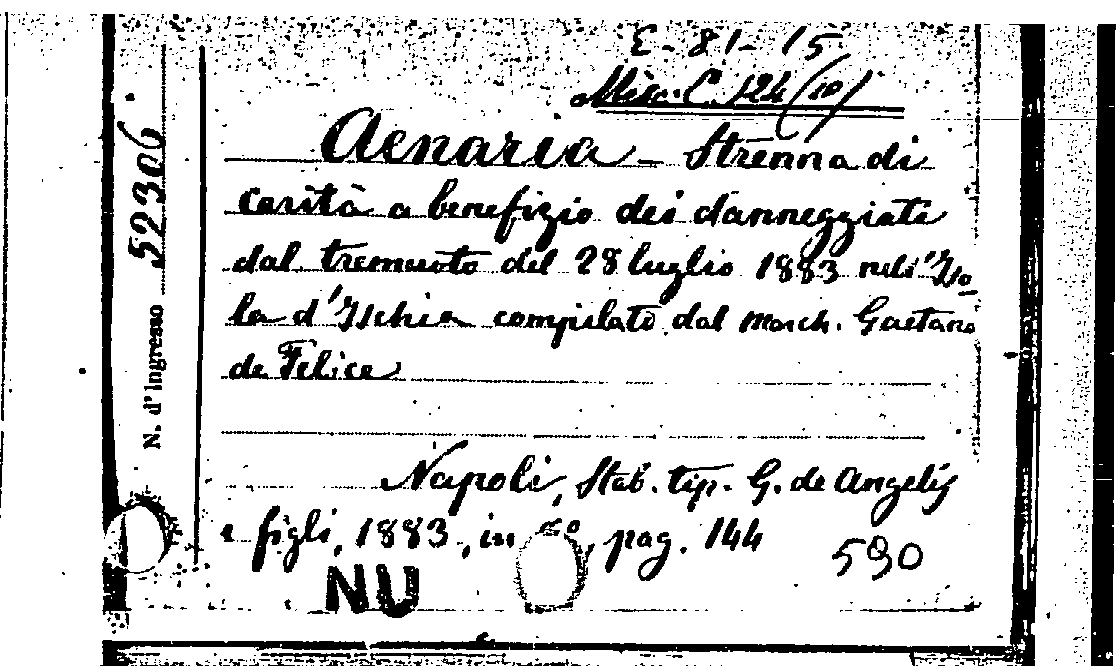 E-81-15
Misc. C. 124 (10)
Aenaria - Strenna di
carità a benefizio dei danneggiati
dal tremuoto del 28 luglio 1883 nell'Iso
la d'Ischia compilato dal March. Gaetano
de Felice
Napoli, Stab. tip. G. de Angelis
e figli, 1883, in 8º, pag. 144
590
NU
N. d'Ingresso 52306